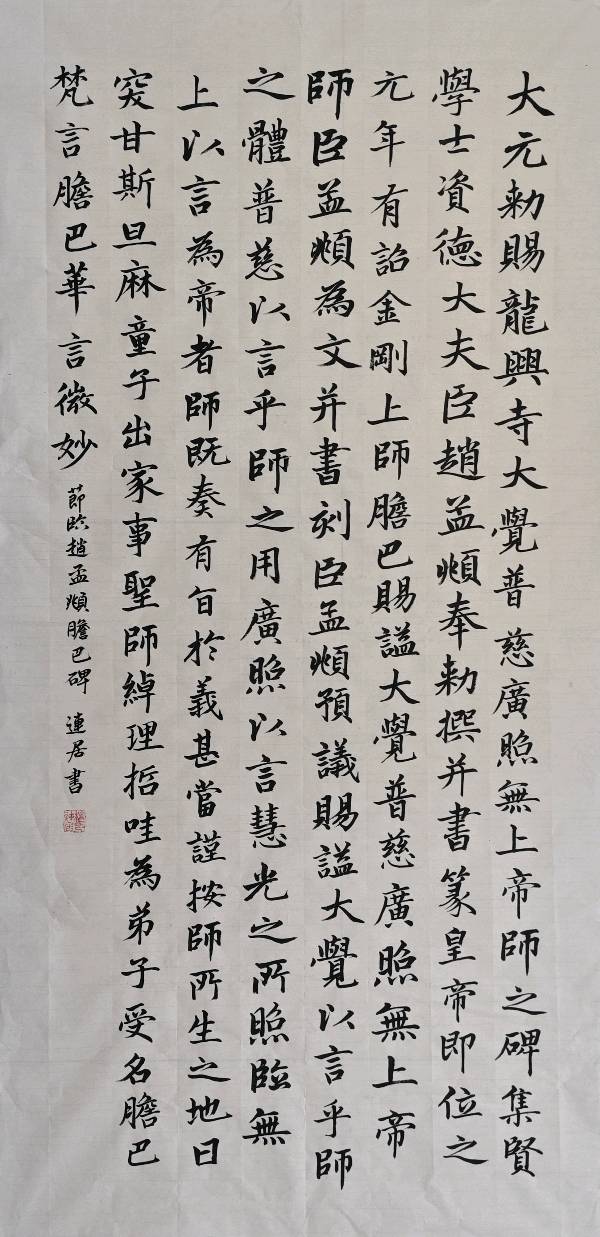 大元勅賜龍興寺大覺普慈廣照無上帝師之碑集賢
學士資德大夫臣趙孟頫奉勅撰并書篆皇帝即位之
元年有詔金剛上師膽巴賜謚大覺普慈廣照無上帝
師臣孟頫為文并書刻臣孟頫預議賜謚大覺以言乎師
之體普慈以言乎師之用廣照以言慧光之所照臨無
上以言為帝者師既奏有旨於義甚當謹按師所生之地曰
突甘斯旦麻童子出家事聖師綽理哲哇為弟子受名膽巴
梵言膽巴華言微妙 節臨趙孟頫膽巴碑 連居書